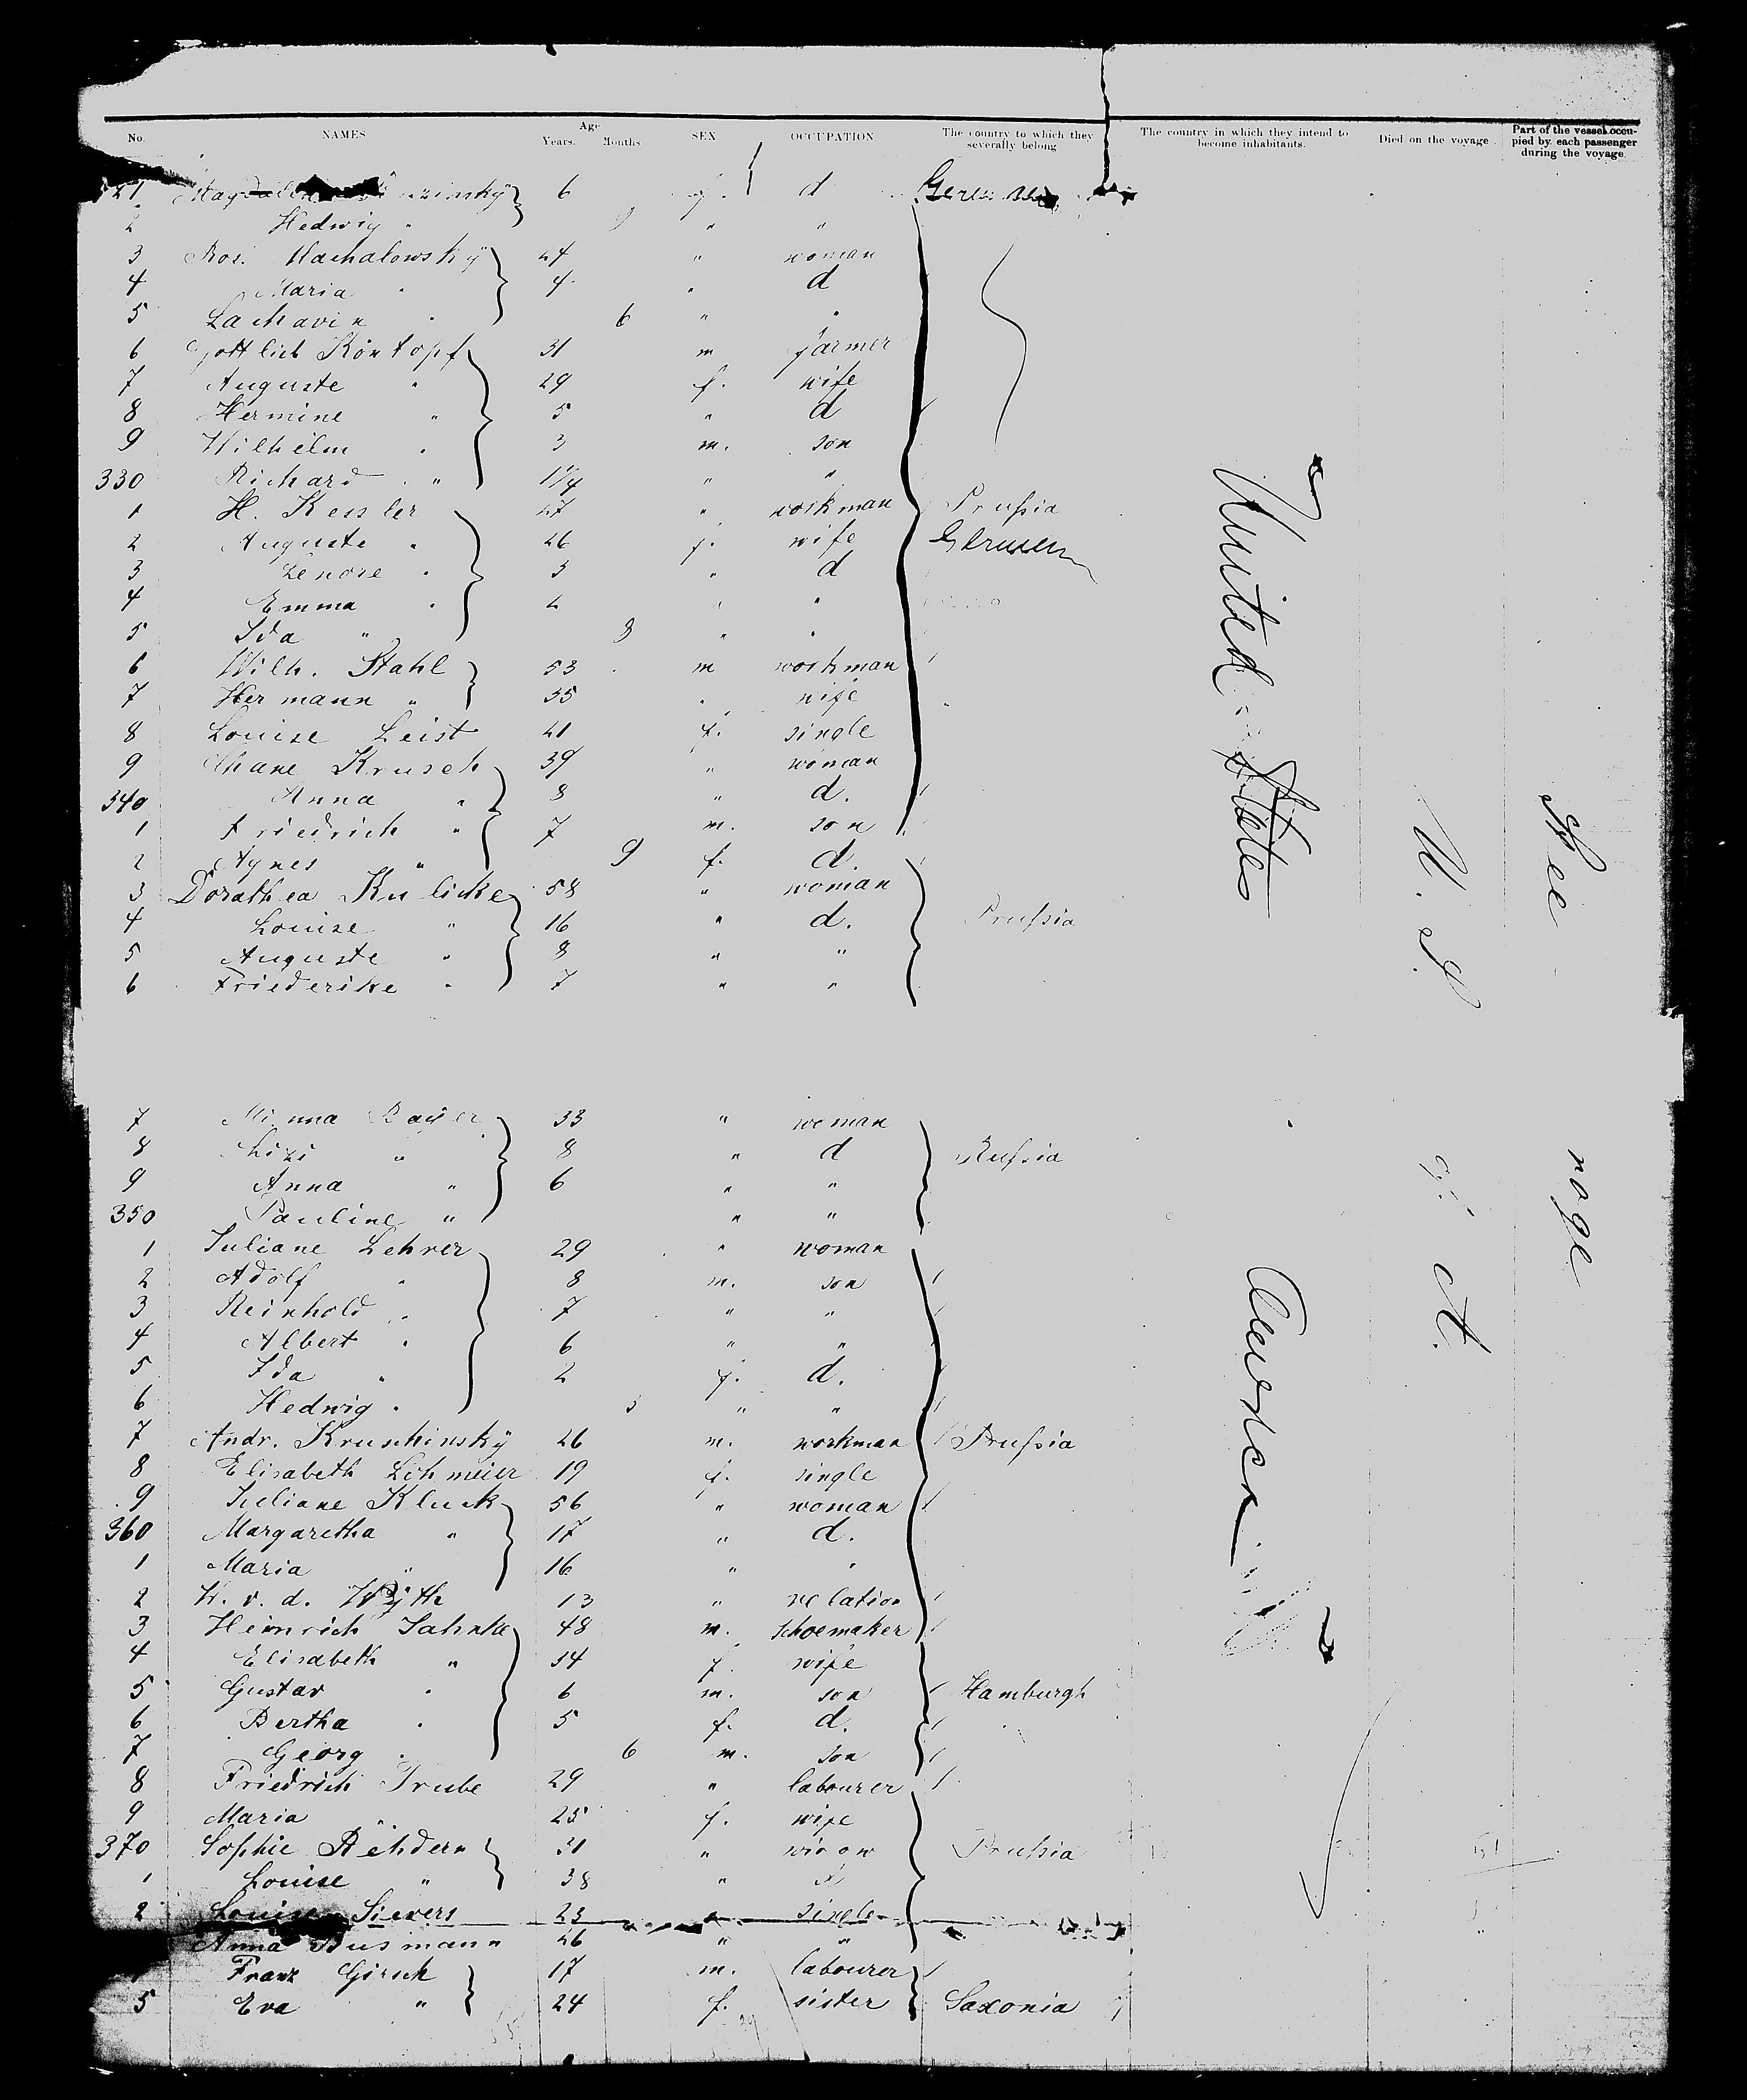 No. NAMES Age Years. Months SEX OCCUPATION The country to which they severally belong The country in which they intend to become inhabitants. Died on the voyage Part of the vessel occupied by each passenger during the voyage.
321 6 f. d
2 Hedwig " 9 " "
3 Ros. Machalowsky 24 " woman
4 Maria " 4 " d
5 " 6 " "
6 Gottlieb Kontopf 31 m farmer
7 Auguste " 29 f. wife
8 Hermine " 5 " d
9 Wilhelm " 3 m. son
330 Richard " 1 1/4 " "
1 H. Kessler 27 " workman Prussia
2 Auguste " 26 f. wife
3 Lenore " 3 " d
4 Emma " 2 " "
5 Ida " 8 " "
6 Wilh. Stahl 53 m workman
7 Hermann " 35 " wife
8 Louise Leist 21 f. single
9 Krusch 39 " woman
340 Anna " 8 " d.
1 Friedrich " 7 m. son
2 Agnes " 9 f. d.
3 Dorathea Kulicke 58 " woman
4 Louise " 16 " d. Prussia
5 Auguste " 8 " "
6 Friederike " 7 " "
7 Minna Bauer 33 " woman
8 Lizi " 8 " d Russia
9 Anna " 6 " "
350 Pauline " " "
1 Juliane Lehrer 29 " woman
2 Adolf " 8 m. son
3 Reinhold " 7 " "
4 Albert " 6 " "
5 Ida " 2 f. d.
6 Hedwig " " "
7 Andr. Kruschinsky 26 m. workman Prussia
8 Elisabeth Lohmeier 19 f. single
9 Juliane Kluck 56 " woman
360 Margaretha " 17 " d.
1 Maria " 16 " "
2 v. d. 13 " relation
3 Heinrich Jahnke 48 m. schoemaker
4 Elisabeth " 34 f. wife
5 Gustav " 6 m. son Hamburgh
6 Bertha " 5 f. d.
7 Georg " 6 m. son
8 Friedrich Trube 29 " labourer
9 Maria " 25 f. wife
370 Sophie Rehdern 31 " widow Prussia
1 Louise " 38 " d
2 Louise Sievers 23 " single
Anna Busmann 26 " "
Franz Girsch 17 m. labourer
5 Eva " 24 f. sister Saxonia
United States
America
U. S.
A.
Stee
rage